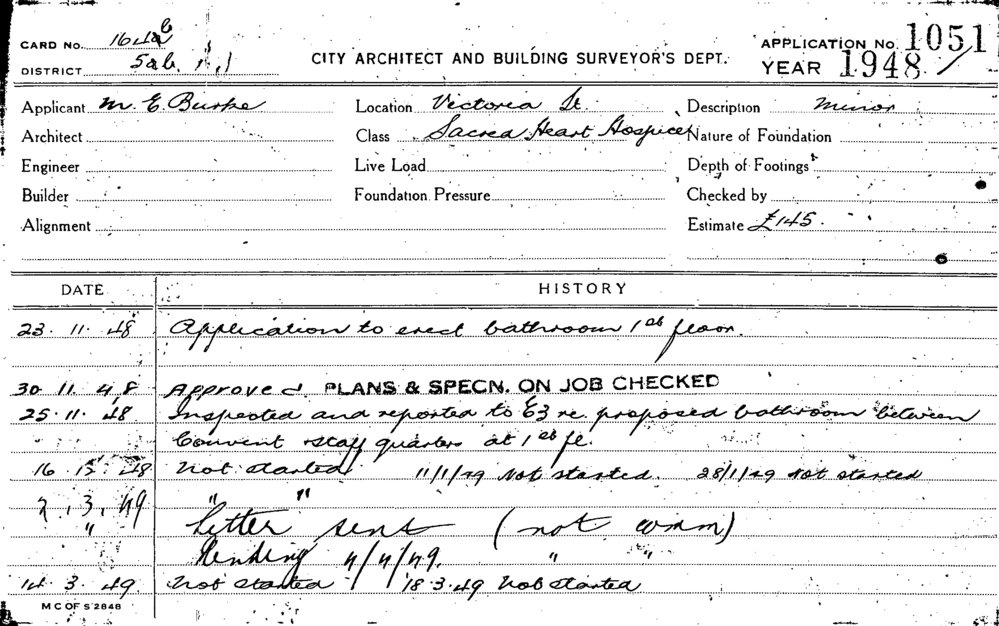 CARD No. 1642
CITY ARCHITECT AND BUILDING SURVEYOR'S DEPT.
APPLICATION No. 1051
DISTRICT
YEAR 1948
Applicant M. E. Burke Location Victoria St. Description Minor
Architect Class Sacred Heart Hospice Nature of Foundation
Engineer Live Load Depth of Footings
Builder Foundation Pressure Checked by
Alignment Estimate £145.
DATE HISTORY
23. 11. 48 Application to erect bathroom 1st floor.
30. 11. 48 Approved. PLANS & SPECN. ON JOB CHECKED
25. 11. 48 Inspected and reported to E3 re. proposed bathroom between
Convent & staff quarters at 1st fl.
16. 12. 48 Not started 11/1/49 Not started. 28/1/49 Not started
2. 3. 49 " "
" Letter sent (not comm)
Pending 4/4/49. " "
14. 3. 49 Not started 18. 3. 49 Not started
M C OF S 2848